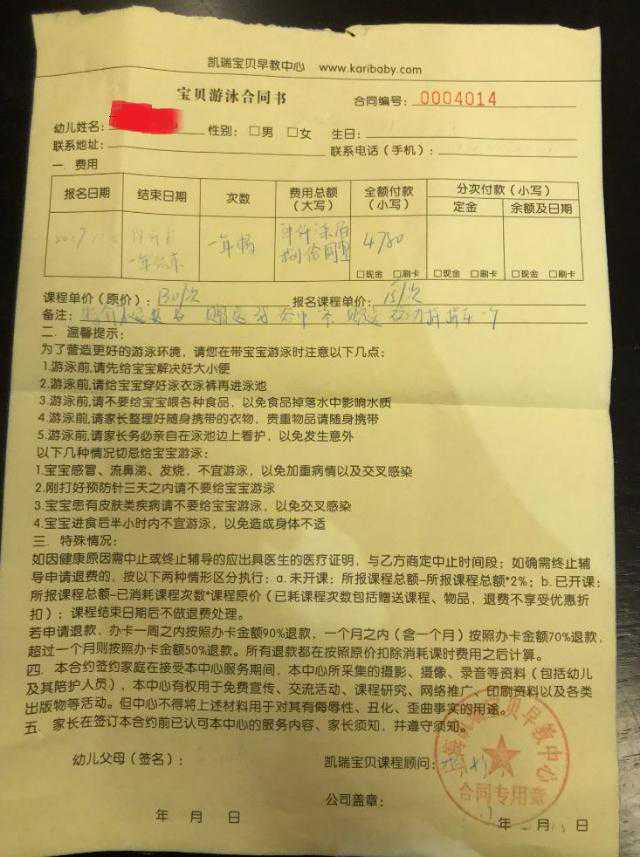 凯瑞宝贝早教中心 www.karibaby.com
宝贝游泳合同书 合同编号: 0004014
幼儿姓名: 性别: □男 □女 生日:
联系地址: 联系电话(手机):
一 费用
报名日期 结束日期 次数 费用总额(大写) 全额付款(小写) 分次付款(小写)
定金 余额及日期
一年畅 4780
□现金 □刷卡 □现金 □刷卡 □现金 □刷卡
课程单价(原价): 130/次 报名课程单价: /次
备注:
二 温馨提示:
为了营造更好的游泳环境, 请您在带宝宝游泳时注意以下几点:
1.游泳前,请先给宝宝解决好大小便
2.游泳前,请给宝宝穿好泳衣泳裤再进泳池
3.游泳前,请不要给宝宝喂各种食品, 以免食品掉落水中影响水质
4.游泳前,请家长整理好随身携带的衣物, 贵重物品请随身携带
5.游泳前,请家长务必亲自在泳池边上看护, 以免发生意外
以下几种情况切忌给宝宝游泳:
1.宝宝感冒、流鼻涕、发烧, 不宜游泳, 以免加重病情以及交叉感染
2.刚打好预防针三天之内请不要给宝宝游泳
3.宝宝患有皮肤类疾病请不要给宝宝游泳, 以免交叉感染
4.宝宝进食后半小时内不宜游泳, 以免造成身体不适
三 特殊情况:
如因健康原因需中止或终止辅导的应出具医生的医疗证明, 与乙方商定中止时间段; 如确需终止辅
导申请退费的, 按以下两种情形区分执行: a.未开课: 所报课程总额-所报课程总额*2%; b.已开课:
所报课程总额-已消耗课程次数*课程原价(已耗课程次数包括赠送课程、物品, 退费不享受优惠折
扣); 课程结束日期后不做退费处理。
若申请退款, 办卡一周之内按照办卡金额90%退款, 一个月之内(含一个月)按照办卡金额70%退款,
超过一个月则按照办卡金额50%退款。所有退款都在按照原价扣除消耗课时费用之后计算。
四 本合约签约家庭在接受本中心服务期间, 本中心所采集的摄影、摄像、录音等资料(包括幼儿
及其陪护人员), 本中心有权用于免费宣传、交流活动、课程研究、网络推广、印刷资料以及各类
出版物等活动。但中心不得将上述材料用于对其有侮辱性、丑化、歪曲事实的用途。
五 家长在签订本合约前已认可本中心的服务内容、家长须知, 并遵守须知。
幼儿父母(签名): 凯瑞宝贝课程顾问:
公司盖章:
年 月 日 年 月 日
宝贝早教中心
合同专用章